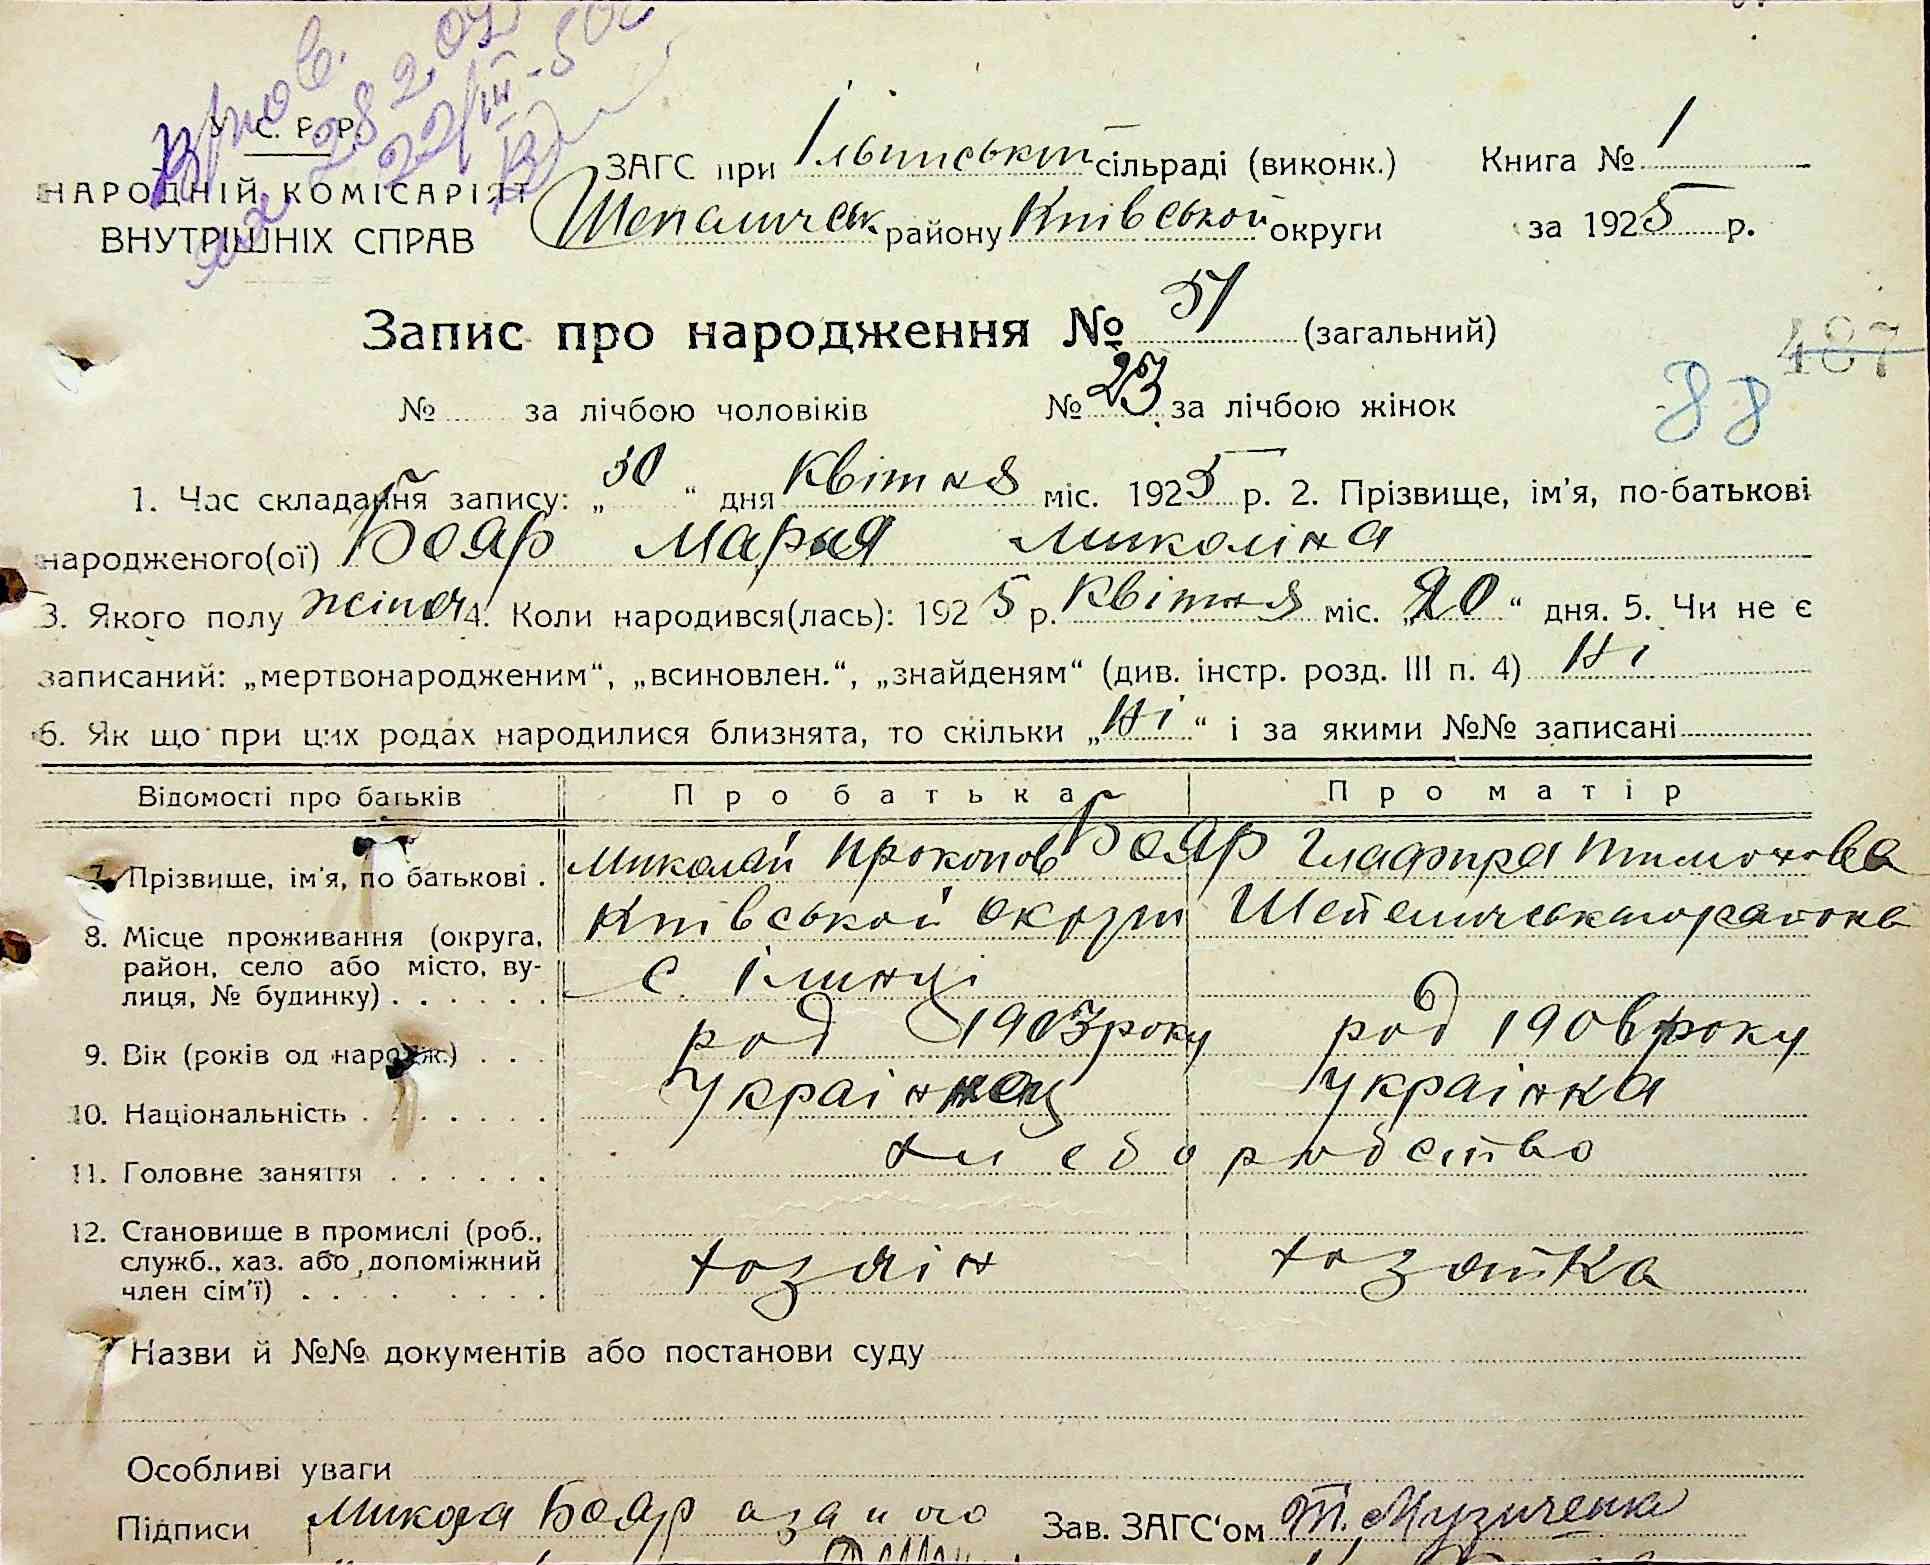 У. С. Р. Р.
НАРОДНІЙ КОМІСАРІЯТ
ВНУТРІШНІХ СПРАВ
ЗАГС при Ільинській сільраді (виконк.) Книга № 1
Шепеличськ району Київської округи за 1925 р.
Запис про народження № 51 (загальний)
487
№ за лічбою чоловіків № 23 за лічбою жінок
88
1. Час складання запису: „30“ дня Квітня міс. 1925 р. 2. Прізвище, ім'я, по-батькові
народженого(ої) Бояр Мария Миколіна
3. Якого полу жіноч 4. Коли народився(лась): 1925 р. Квітня міс. „20“ дня. 5. Чи не є
записаний: „мертвонародженим“, „всиновлен.“, „знайденям“ (див. інстр. розд. III п. 4) Ні
6. Як що при цих родах народилися близнята, то скільки „Ні“ і за якими №№ записані
Відомості про батьків Про батька Про матір
7. Прізвище, ім'я, по батькові . Миколай Прокопов Бояр Глафира Тимохова
8. Місце проживання (округа, Київської округи Шепеличського района
район, село або місто, ву- с. Ілинці
лиця, № будинку) . . . . . .
9. Вік (років од народж.) . . . род 1903 року род 1906 року
10. Національність . . . . . . . Украінец Украінка
11. Головне заняття . . . . . . хлеборобство
12. Становище в промислі (роб.,
служб., хаз. або допоміжний хозяін хозяйка
член сім'ї) . . . . . . . .
Назви й №№ документів або постанови суду
Особливі уваги
Підписи Микола Бояр а за його Зав. ЗАГС'ом Т. Музиченко